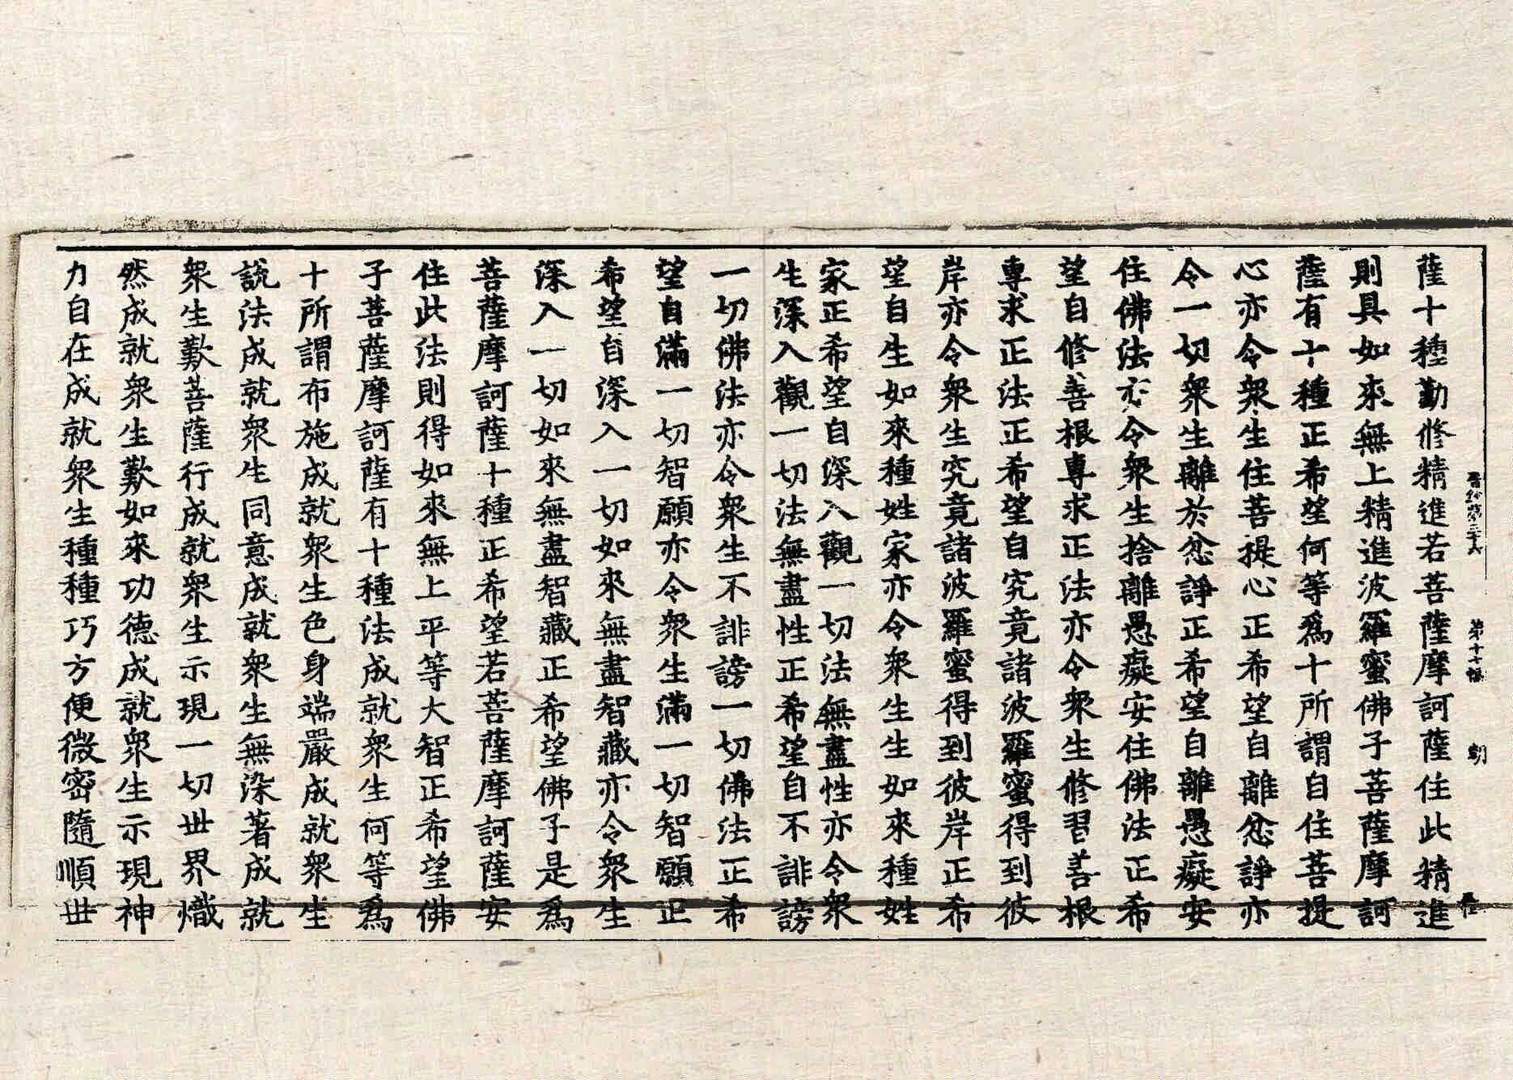 薩十種勤修精進若菩薩摩訶薩住此精進
則具如來無上精進波羅蜜佛子菩薩摩訶
薩有十種正希望何等爲十所謂自住菩提
心亦令衆生住菩提心正希望自離忿諍亦
令一切衆生離於忿諍正希望自離愚癡安
住佛法亦令衆生捨離愚癡安住佛法正希
望自修善根專求正法亦令衆生修習善根
專求正法正希望自究竟諸波羅蜜得到彼
岸亦令衆生究竟諸波羅蜜得到彼岸正希
望自生如來種姓家亦令衆生生如來種姓
家正希望自深入觀一切法無盡性亦令衆
生深入觀一切法無盡性正希望自不誹謗
一切佛法亦令衆生不誹謗一切佛法正希
望自滿一切智願亦令衆生滿一切智願正
希望自深入一切如來無盡智藏亦令衆生
深入一切如來無盡智藏正希望佛子是爲
菩薩摩訶薩十種正希望若菩薩摩訶薩安
住此法則得如來無上平等大智正希望佛
子菩薩摩訶薩有十種法成就衆生何等爲
十所謂布施成就衆生色身端嚴成就衆生
說法成就衆生同意成就衆生無染著成就
衆生歎菩薩行成就衆生示現一切世界熾
然成就衆生歎如來功德成就衆生示現神
力自在成就衆生種種巧方便微密隨順世